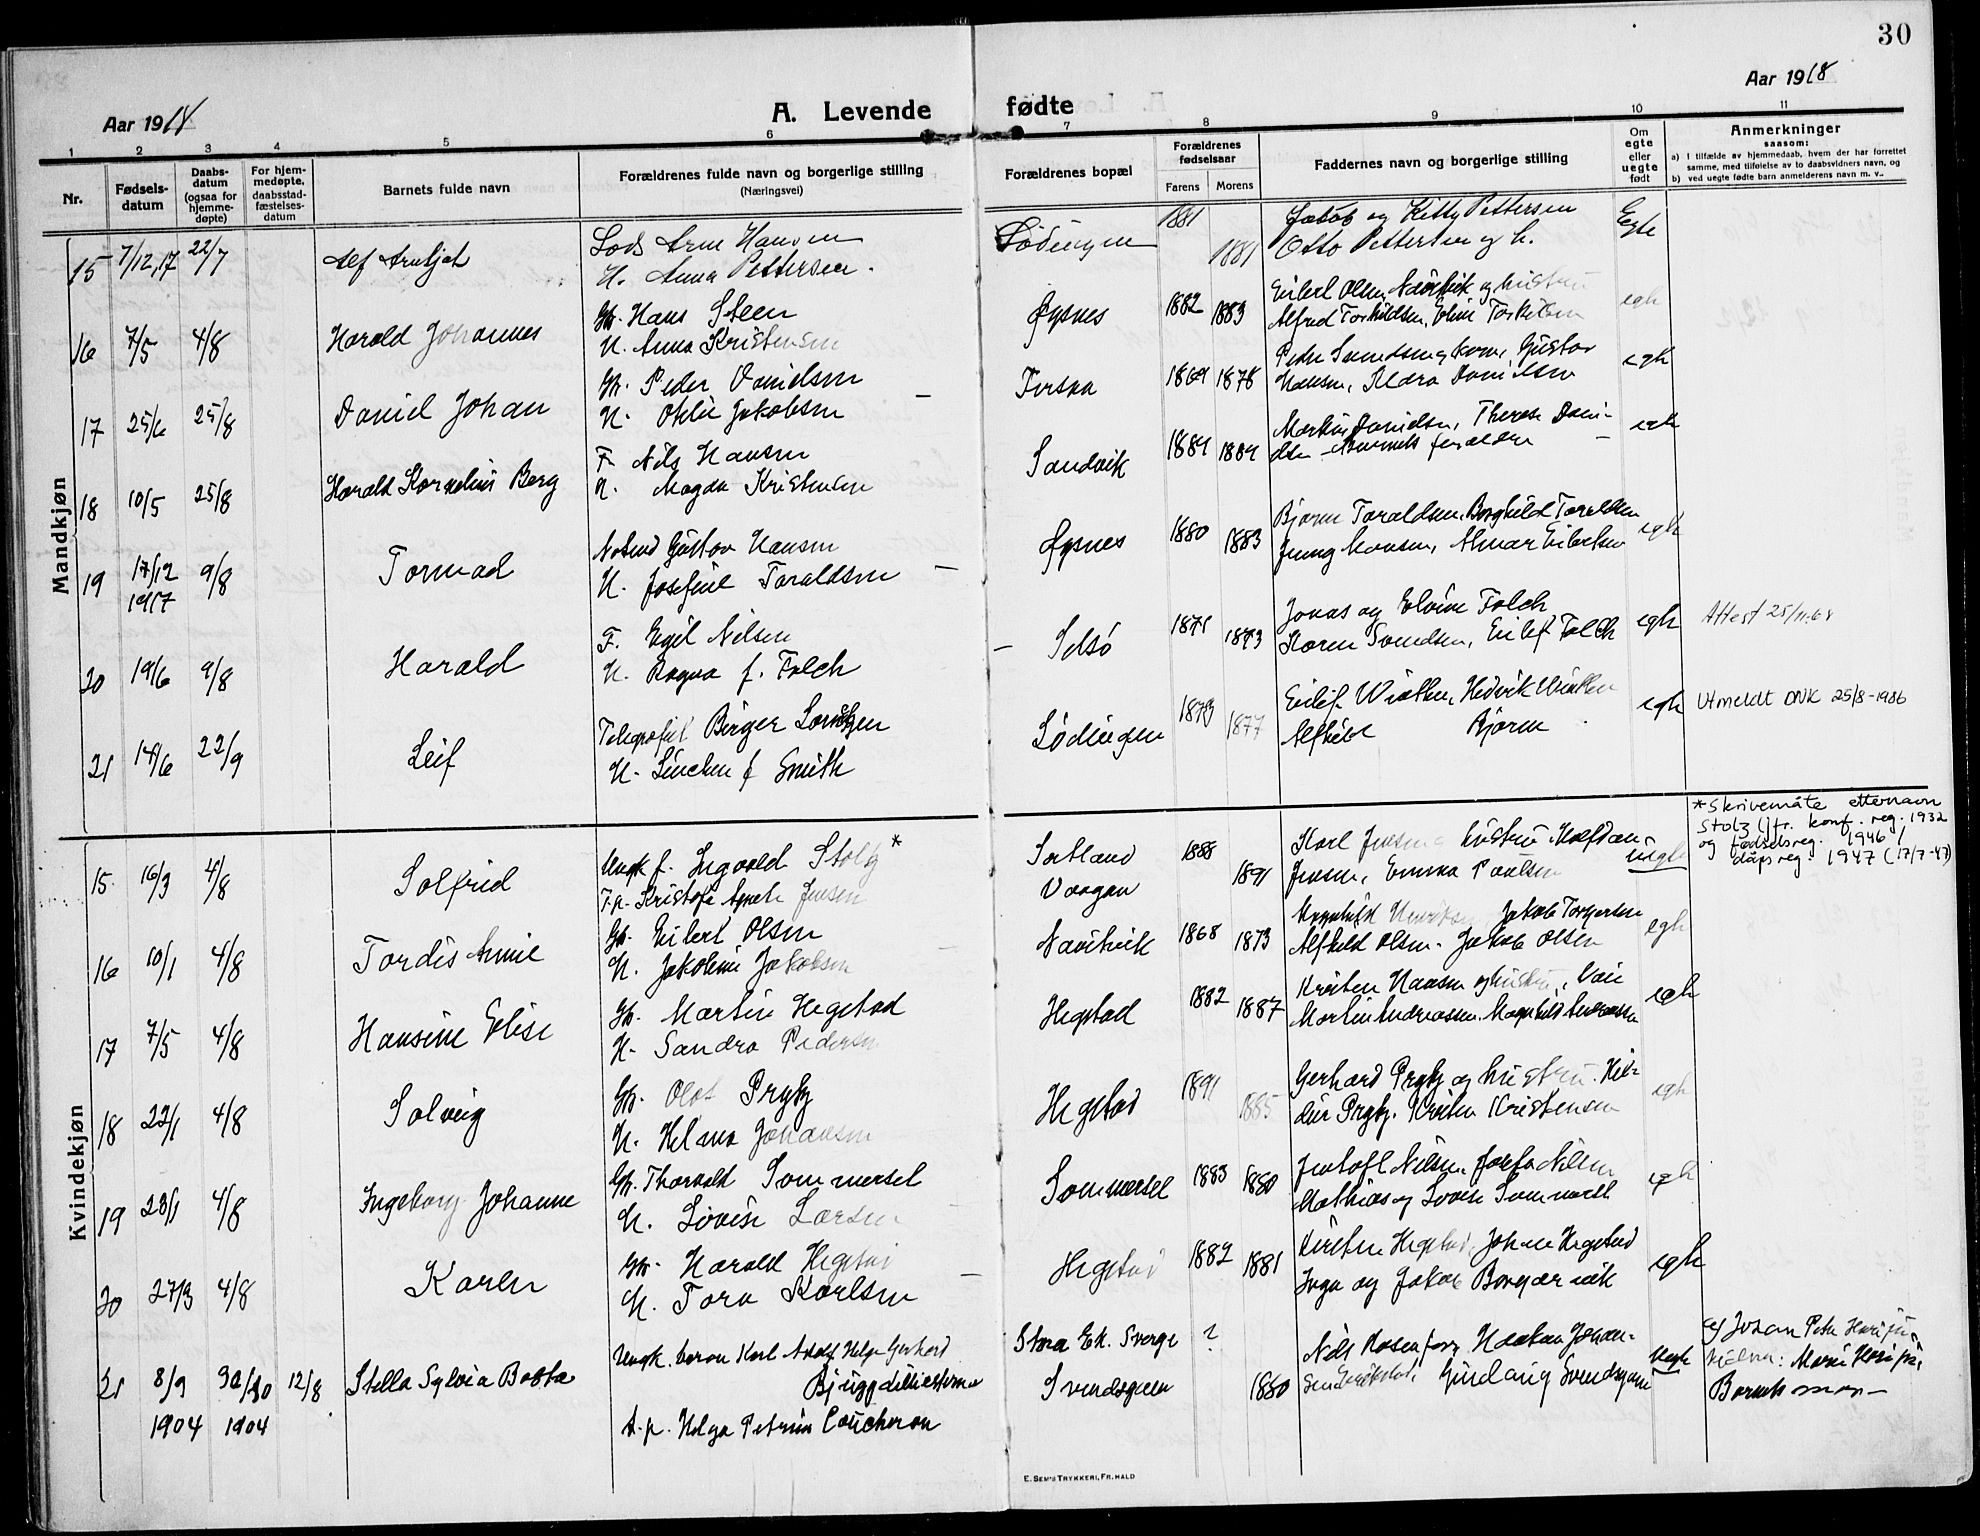 30
Aar 1918
A. Levende fødte
Aar 1918
1 2 3 4 5 6 7 8 9 10 11
Nr.
Fødsels-
datum
Daabs-
datum
(ogsaa for
hjemme-
døpte)
For hjem-
medøpte,
daabsstad-
fæstelses-
datum
Barnets fulde navn
Forældrenes fulde navn og borgerlige stilling
(Næringsvei)
Forældrenes bopæl
Forældrenes
fødselsaar
Farens Morens
Faddernes navn og borgerlige stilling
Om
egte
eller
uegte
født
Anmerkninger
saasom:
a) I tilfælde av hjemmedaab, hvem der har forrettet
samme, med tilføielse av to daabsvidners navn, og
b) ved uegte fødte barn anmelderens navn m. v..
Mandkjøn
15 7/12, 17 22/7 Alf Arnljot
Lods Arne Hansen
H. Anna Pettersen.
Lødingen 1881 1881
Jakob og Kitty Pettersen
Otto Pettersen og h.
Egte
16 7/5 4/8 Harald Johannes
Gbr. Hans Steen
H. Anna Kristensen
Øysnes 1882 1883
Eilert Olsen, Navitvik og hustru
Alfred Torkildsen, Eline Torkildsen
egte
17 25/6 25/8 Daniel Johan
Gbr. Peder Danielsen
H. Otelie Jakobsen
1869 1878
Peder Svendsen og kone, Gustav
Hansen, Aldra Danielsen
egte
18 10/5 25/8 Harald Kornelius Berg
F. Nils Hansen
H. Magda Kristensen
Sandvik 1884 1884
Martin Danielsen, Therese Dani-
elsen Barnets forældre
egte
19 17/12 1917 9/8 Tormod
Notend Gustav Hansen
H. Josefine Taraldsen
Øysnes 1880 1883
Bjarne Taraldsen, Borghild Taraldsen
Jenny Hansen, Almar Eilertsen
egte
20 19/6 9/8 Harald
F. Egil Nilsen
H. Ragna f. Falch
Selsø 1871 1873
Jonas og Elvine Falch
Karen Svendsen, Eilef Falch
egte
Attest 25/11.68
21 14/6 22/9 Leif
Telegrafist Birger Lorentzen
H. Linchen f Smith
Lødingen 1873 1877
Eilif Winther, Hedvik Winther
Alfhild Bjørn
egte
Utmeldt DNK 25/8-1986
Kvindekjøn
15. 16/3 4/8 Solfrid
Ungk f. Ingvald Stolz *
F.p. Kristofa Agnete Jensen
Sortland 1888
Vaagan 1891
Karl Jensen hustru. Halfdan
Jensen, Emma Paulsen
uegte
* Skrivemåte etternavn
Stolz (jfr. konf. reg. 1932
og fødselsreg. 1946 /
dåpsreg 1947 (17/7-47)
16 10/1 4/8 Tordis Annie
Gbr. Eilert Olsen
H. Jakobine Jakobsen
Navitvik 1868 1873
Magnhild Henriksen Jakob Torgersen
Alfhild Olsen. Jakob Olsen
egte
17 7/5 4/8 Hansine Elise
Gbr. Martin Hegstad
H. Sandra Pedersen
Hegstad 1882 1887
Kristen Hansen og hustru,
Martin Andreassen, Magnhild Andreassen
egte
18 22/1 4/8 Solveig
Gbr. Olaf Prytz
H. Helena Johansen
Hegstad 1891 1885
Gerhard Prytz og hustru. Hil-
dur Prytz. Kristen Kristensen
egte
19 28/1 4/8 Ingeborg Johanne
Gbr. Thorvald Sommersel
H. Lovise Larsen
Sommersel 1883 1880
Jentoft Nilsen, Josefa Nilsen
Mathias og Lovise Sommersel
egte
20 27/3 4/8 Karen
Gbr. Harald Hegstad
H. Tora Karlsen
Hegstad 1882 1881
Kirsten Hegstad. Johan Hegstad
Inga og Jakob Borgarvik
egte
21 8/9 1904 30/10 1904 12/8 Stella Sylvia Bobta
Ungk. baron Karl Adolf Helge Gerhard
Bjuggdilliestierna
A.p. Helga Petrine Coucheron
Stora Ek. Sverge ?
Svendsgam 1880
Nils Rosenborg, Haakon Johan-
sen Fredrikstad, Gudlaug Svendsgam
Uegte
af Johan Peter
vidne: Marie
Barnets mor
E. SEM'S TRYKKERI, FR.HALD